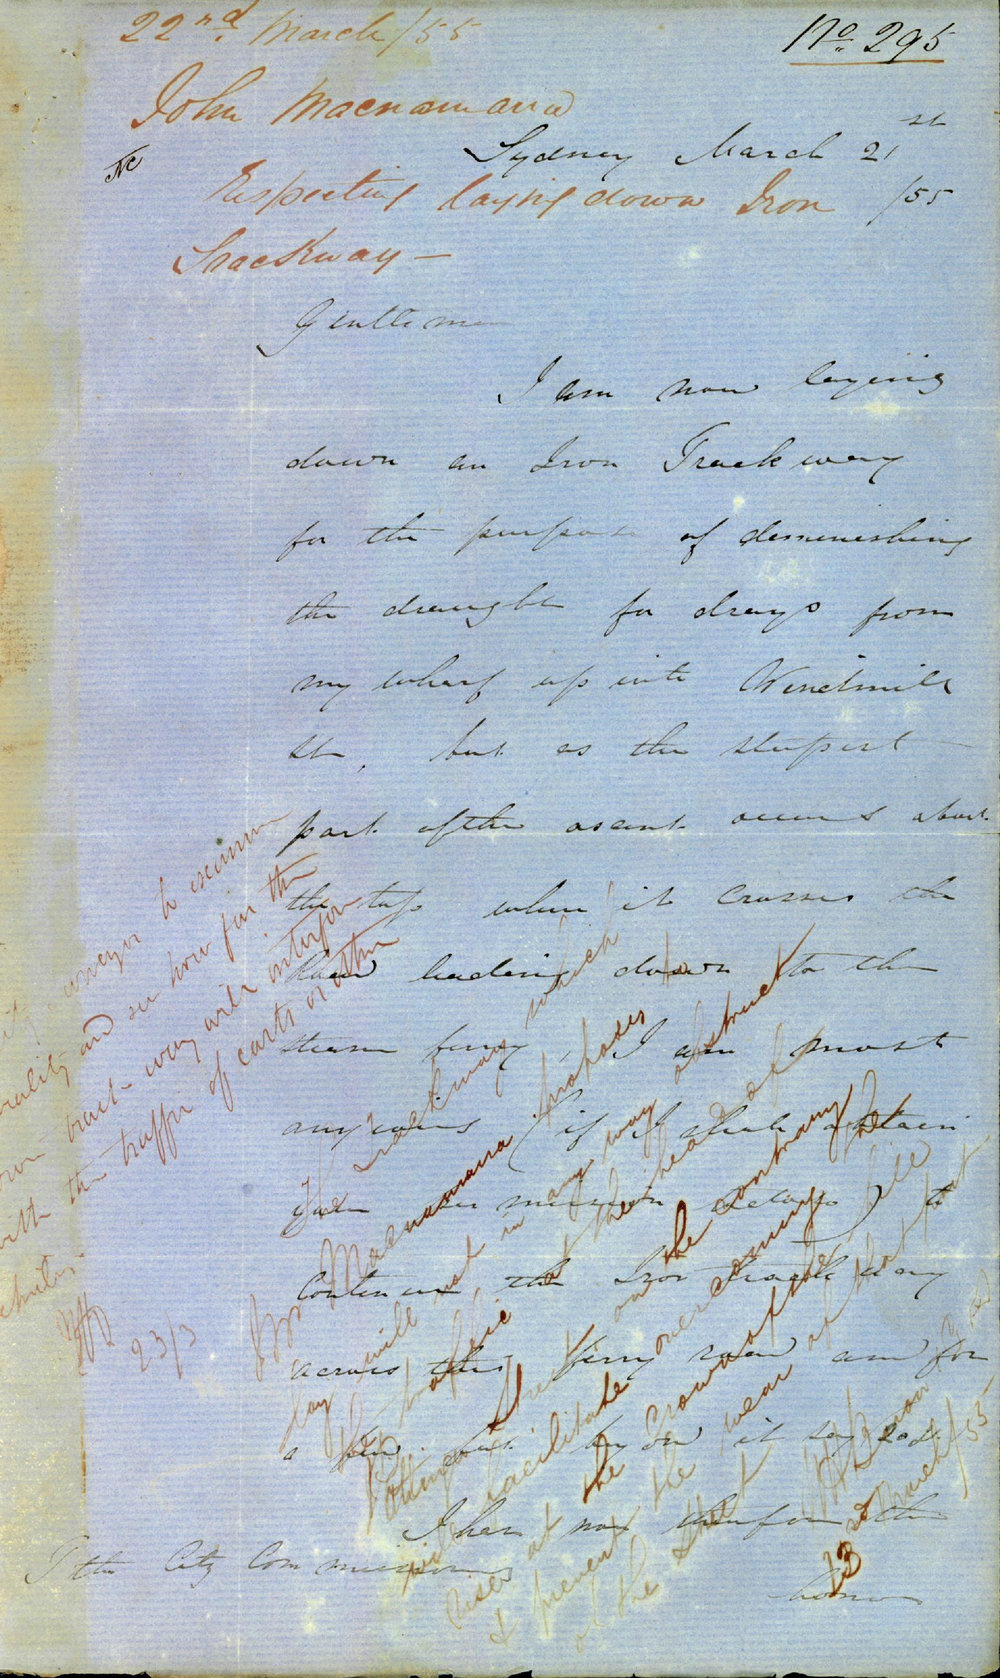 22nd. March/55
No. 295
John Macnamara
Sydney March 21st
/55
Respecting laying down Iron
Trackway —
Gentlemen
I am now laying
down an Iron Track way
for the purpose of demenishing
the draught for drays from
my wharf up into Windmill
St, but as the steepest
part of the ascent occurs about
the top when it crosses the
leading down to the
steam ferry, I am most
anxious (if I shall obtain
your permission) to
continue the Iron Track way
across this ferry road and for
a few feet beyond it say 20 ft
I have now therefore the
honor
To the City Commissioners
City Surveyor to examine
locality and see how far the
iron tract-way will interfere
with the traffic of carts or other
vehicles
23/3
The Trackway which
Mr Macnamara proposes to
lay will not in any way obstruct
the traffic at the head of
Pottinger Street on the contrary he
will facilitate overcoming the
rise at the Crown of the hill
& prevent the wear of that part
of the Street
23rd March/55